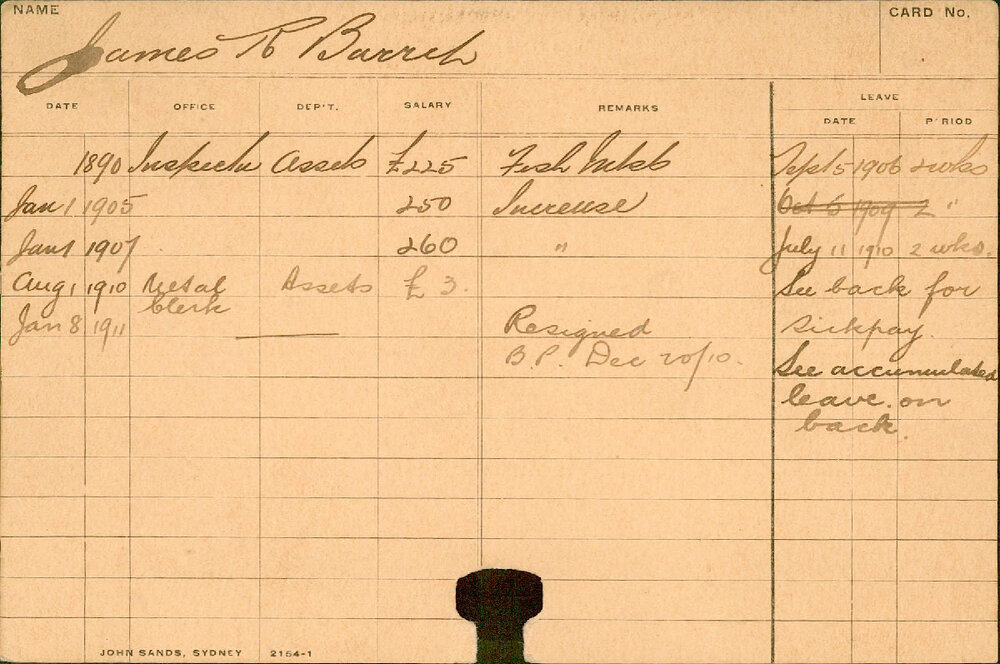 NAME
CARD No.
James R Barret
DATE OFFICE DEP'T. SALARY REMARKS LEAVE
DATE P'RIOD
1890 Inspector Assets £225 Fish Mkts Sept 5 1906 2 wks
Jan 1 1905 250 Increase Oct 5 1909 2 "
Jan 1 1907 260 " July 11 1910 2 wks.
Aug 1 1910 Clerk Assets £3. See back for
Jan 8 1911 Resigned sickpay.
B.P. Dec 20/10.
See accumulated
leave on
back.
JOHN SANDS, SYDNEY 2154-1